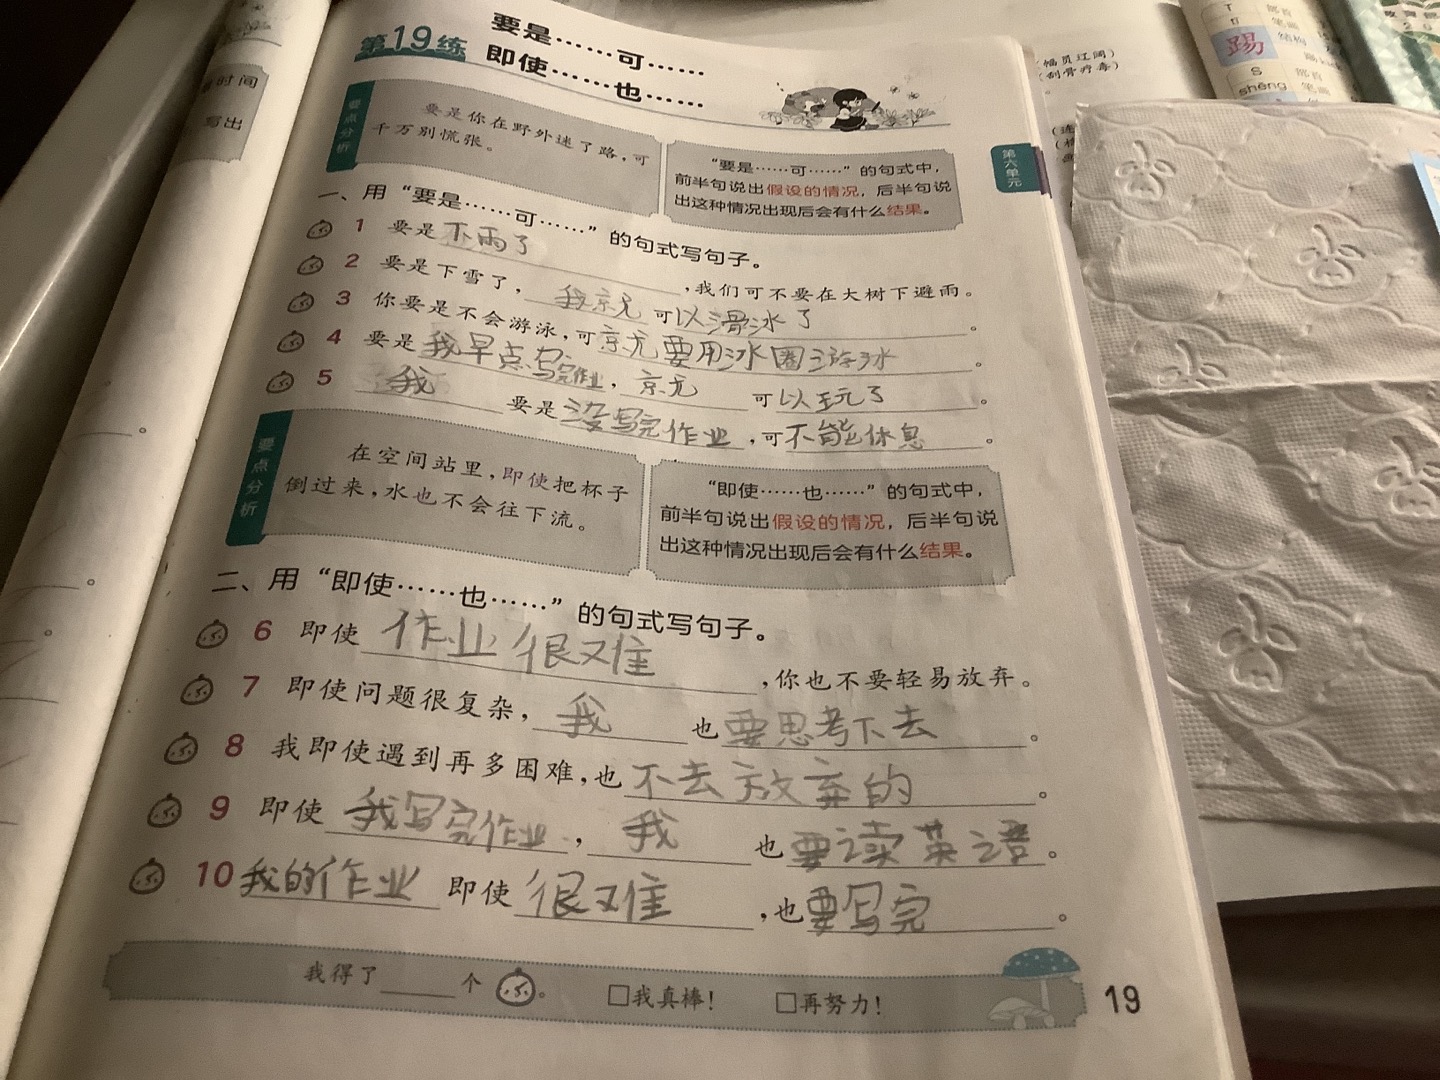 第19练
要是……可……
即使……也……
要点分析
要是你在野外迷了路，可
千万别慌张。
“要是……可……”的句式中，
前半句说出假设的情况，后半句说
出这种情况出现后会有什么结果。
第六单元
一、用“要是……可……”的句式写句子。
1 要是下雨了，我们可不要在大树下避雨。
2 要是下雪了，我京尤可以滑冰了。
3 你要是不会游泳，可京尤要用冰圈游泳。
4 要是我早点写完作业，京尤可以玩了。
5 我要是没写完作业，可不能休息。
要点分析
在空间站里，即使把杯子
倒过来，水也不会往下流。
“即使……也……”的句式中，
前半句说出假设的情况，后半句说
出这种情况出现后会有什么结果。
二、用“即使……也……”的句式写句子。
6 即使作业很难，你也不要轻易放弃。
7 即使问题很复杂，我也要思考下去。
8 我即使遇到再多困难，也不去放弃的。
9 即使我写完作业，我也要读英语。
10 我的作业即使很难，也要写完。
我得了 个 。 □我真棒！ □再努力！
19
时间
写出
(幅员辽阔)
(刮骨疗毒)
踢
结构
部首
笔画
S
shēng
部首
笔画
T